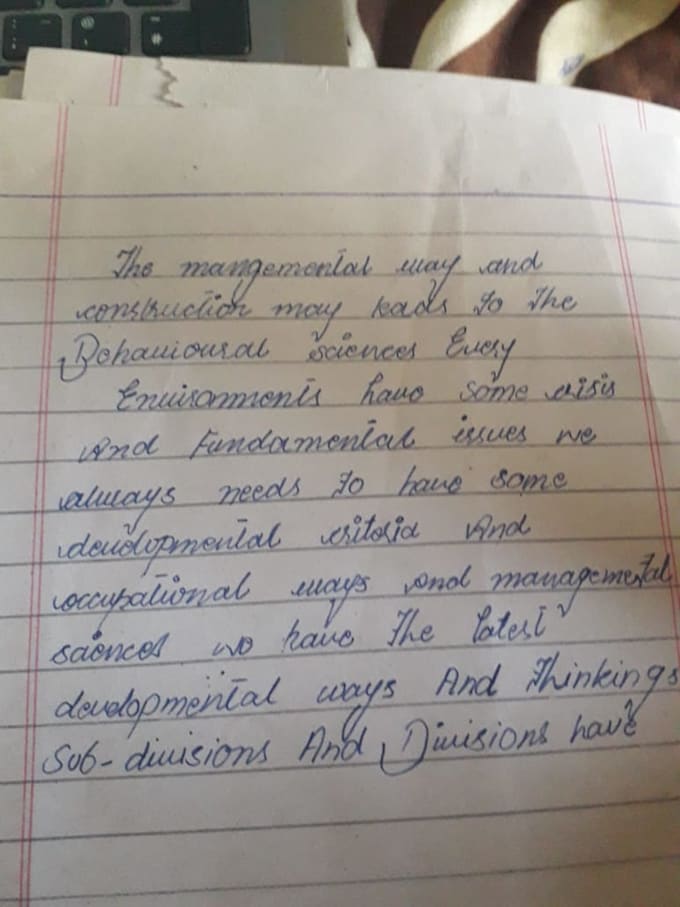 The mangemental way and
construction may leads to the
Behavioural sciences Every
Environments have some crisis
And Fundamental issues we
always needs to have some
developmental criteria And
occupational ways and managemental
sciences we have The latest
developmental ways And Thinkings
Sub-divisions And Divisions have